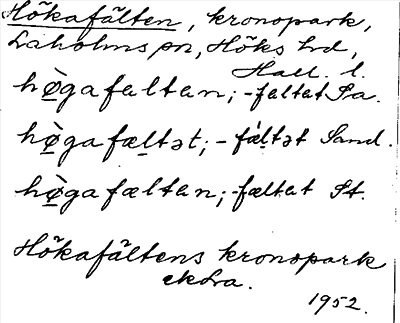 Hökafälten, kronopark,
Laholms sn, Höks hd,
Hall. l.
hø̀gafaltan; -faltat Sa.
hø̀gafæltət; -fæ̀ltət Sand.
hø̀gafæltan; -fæltat St.
Hökafältens kronopark
ekdra.
1952.